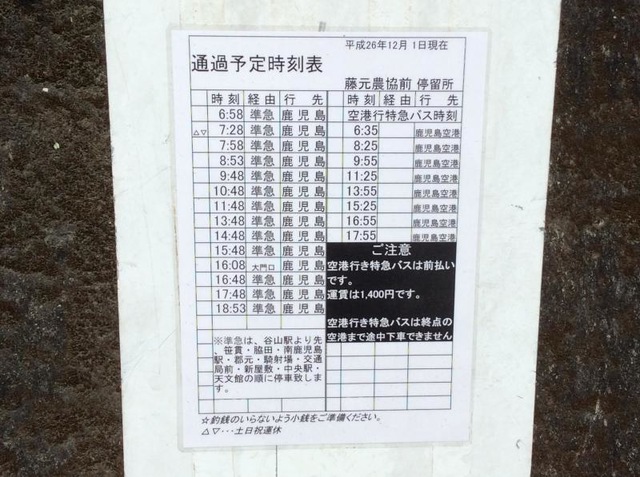 平成26年12月 1日現在
通過予定時刻表
藤元農協前 停留所
時 刻 経 由 行 先
6:58 準急 鹿 児 島
△▽ 7:28 準急 鹿 児 島
7:58 準急 鹿 児 島
8:53 準急 鹿 児 島
9:48 準急 鹿 児 島
10:48 準急 鹿 児 島
11:48 準急 鹿 児 島
13:48 準急 鹿 児 島
14:48 準急 鹿 児 島
15:48 準急 鹿 児 島
16:08 大門口 鹿 児 島
16:48 準急 鹿 児 島
17:48 準急 鹿 児 島
18:53 準急 鹿 児 島
※準急は、谷山駅より先
、笹貫・脇田・南鹿児島
駅・郡元・騎射場・交通
局前・新屋敷・中央駅・
天文館の順に停車致しま
す。
時 刻 経 由 行 先
空港行特急バス時刻
6:35 鹿児島空港
8:25 鹿児島空港
9:55 鹿児島空港
11:25 鹿児島空港
13:55 鹿児島空港
15:25 鹿児島空港
16:55 鹿児島空港
17:55 鹿児島空港
ご注意
空港行き特急バスは前払い
です。
運賃は1,400円です。
空港行き特急バスは終点の
空港まで途中下車できません
☆釣銭のいらないよう小銭をご準備ください。
△▽･･･土日祝運休